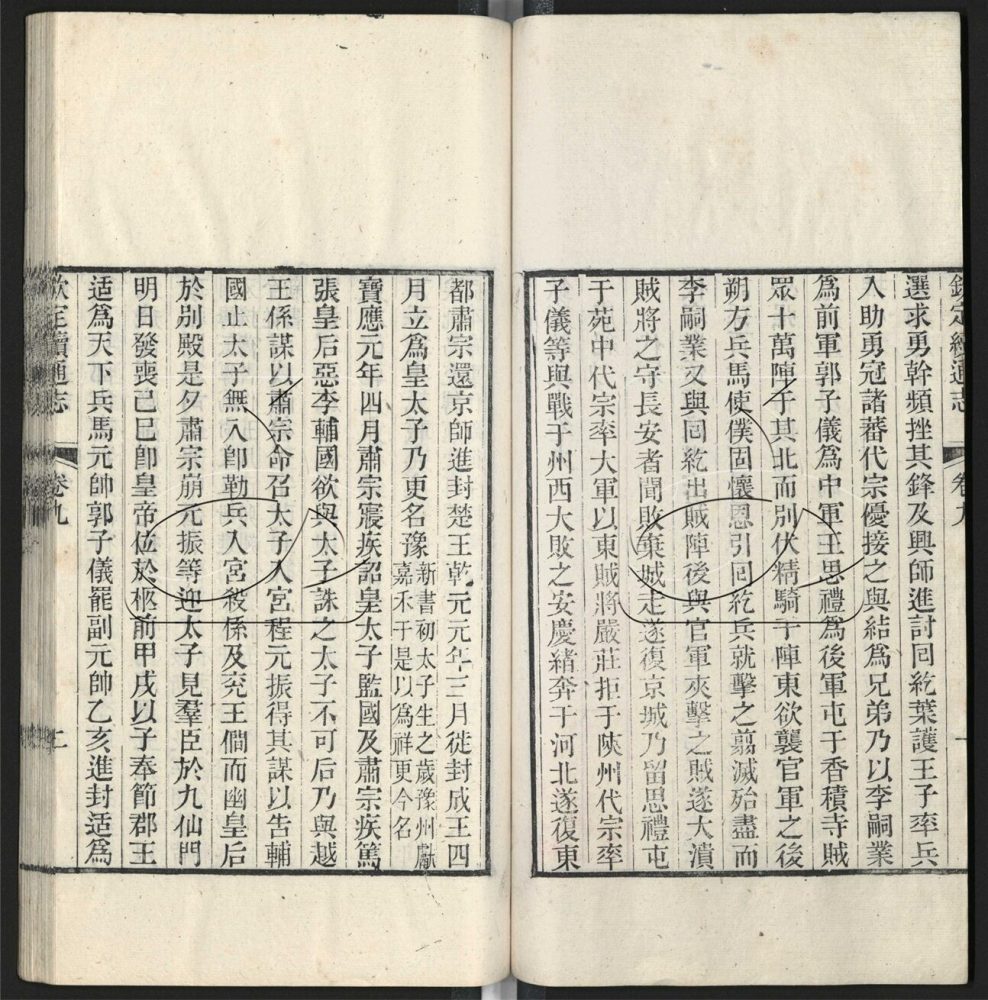 欽定續通志　卷九　一
選求勇幹頻挫其鋒及興師進討回紇葉護王子率兵
入助勇冠諸蕃代宗優接之與結爲兄弟乃以李嗣業
爲前軍郭子儀爲中軍王思禮爲後軍屯于香積寺賊
眾十萬陣于其北而別伏精騎于陣東欲襲官軍之後
朔方兵馬使僕固懷恩引回紇兵就擊之翦滅殆盡而
李嗣業又與回紇出賊陣後與官軍夾擊之賊遂大潰
賊將之守長安者聞敗棄城走遂復京城乃留思禮屯
于苑中代宗率大軍以東賊將嚴莊拒于陝州代宗率
子儀等與戰于州西大敗之安慶緒奔于河北遂復東
都肅宗還京師進封楚王乾元元年三月徙封成王四
月立爲皇太子乃更名豫新書初太子生之歲豫州獻
嘉禾于是以爲祥更今名
寶應元年四月肅宗寢疾詔皇太子監國及肅宗疾篤
張皇后惡李輔國欲與太子誅之太子不可后乃與越
王係謀以肅宗命召太子入宮程元振得其謀以告輔
國止太子無入即勒兵入宮殺係及兗王僩而幽皇后
於別殿是夕肅宗崩元振等迎太子見羣臣於九仙門
明日發喪己巳即皇帝位於柩前甲戌以子奉節郡王
适爲天下兵馬元帥郭子儀罷副元帥乙亥進封适爲
欽定續通志　卷九　二